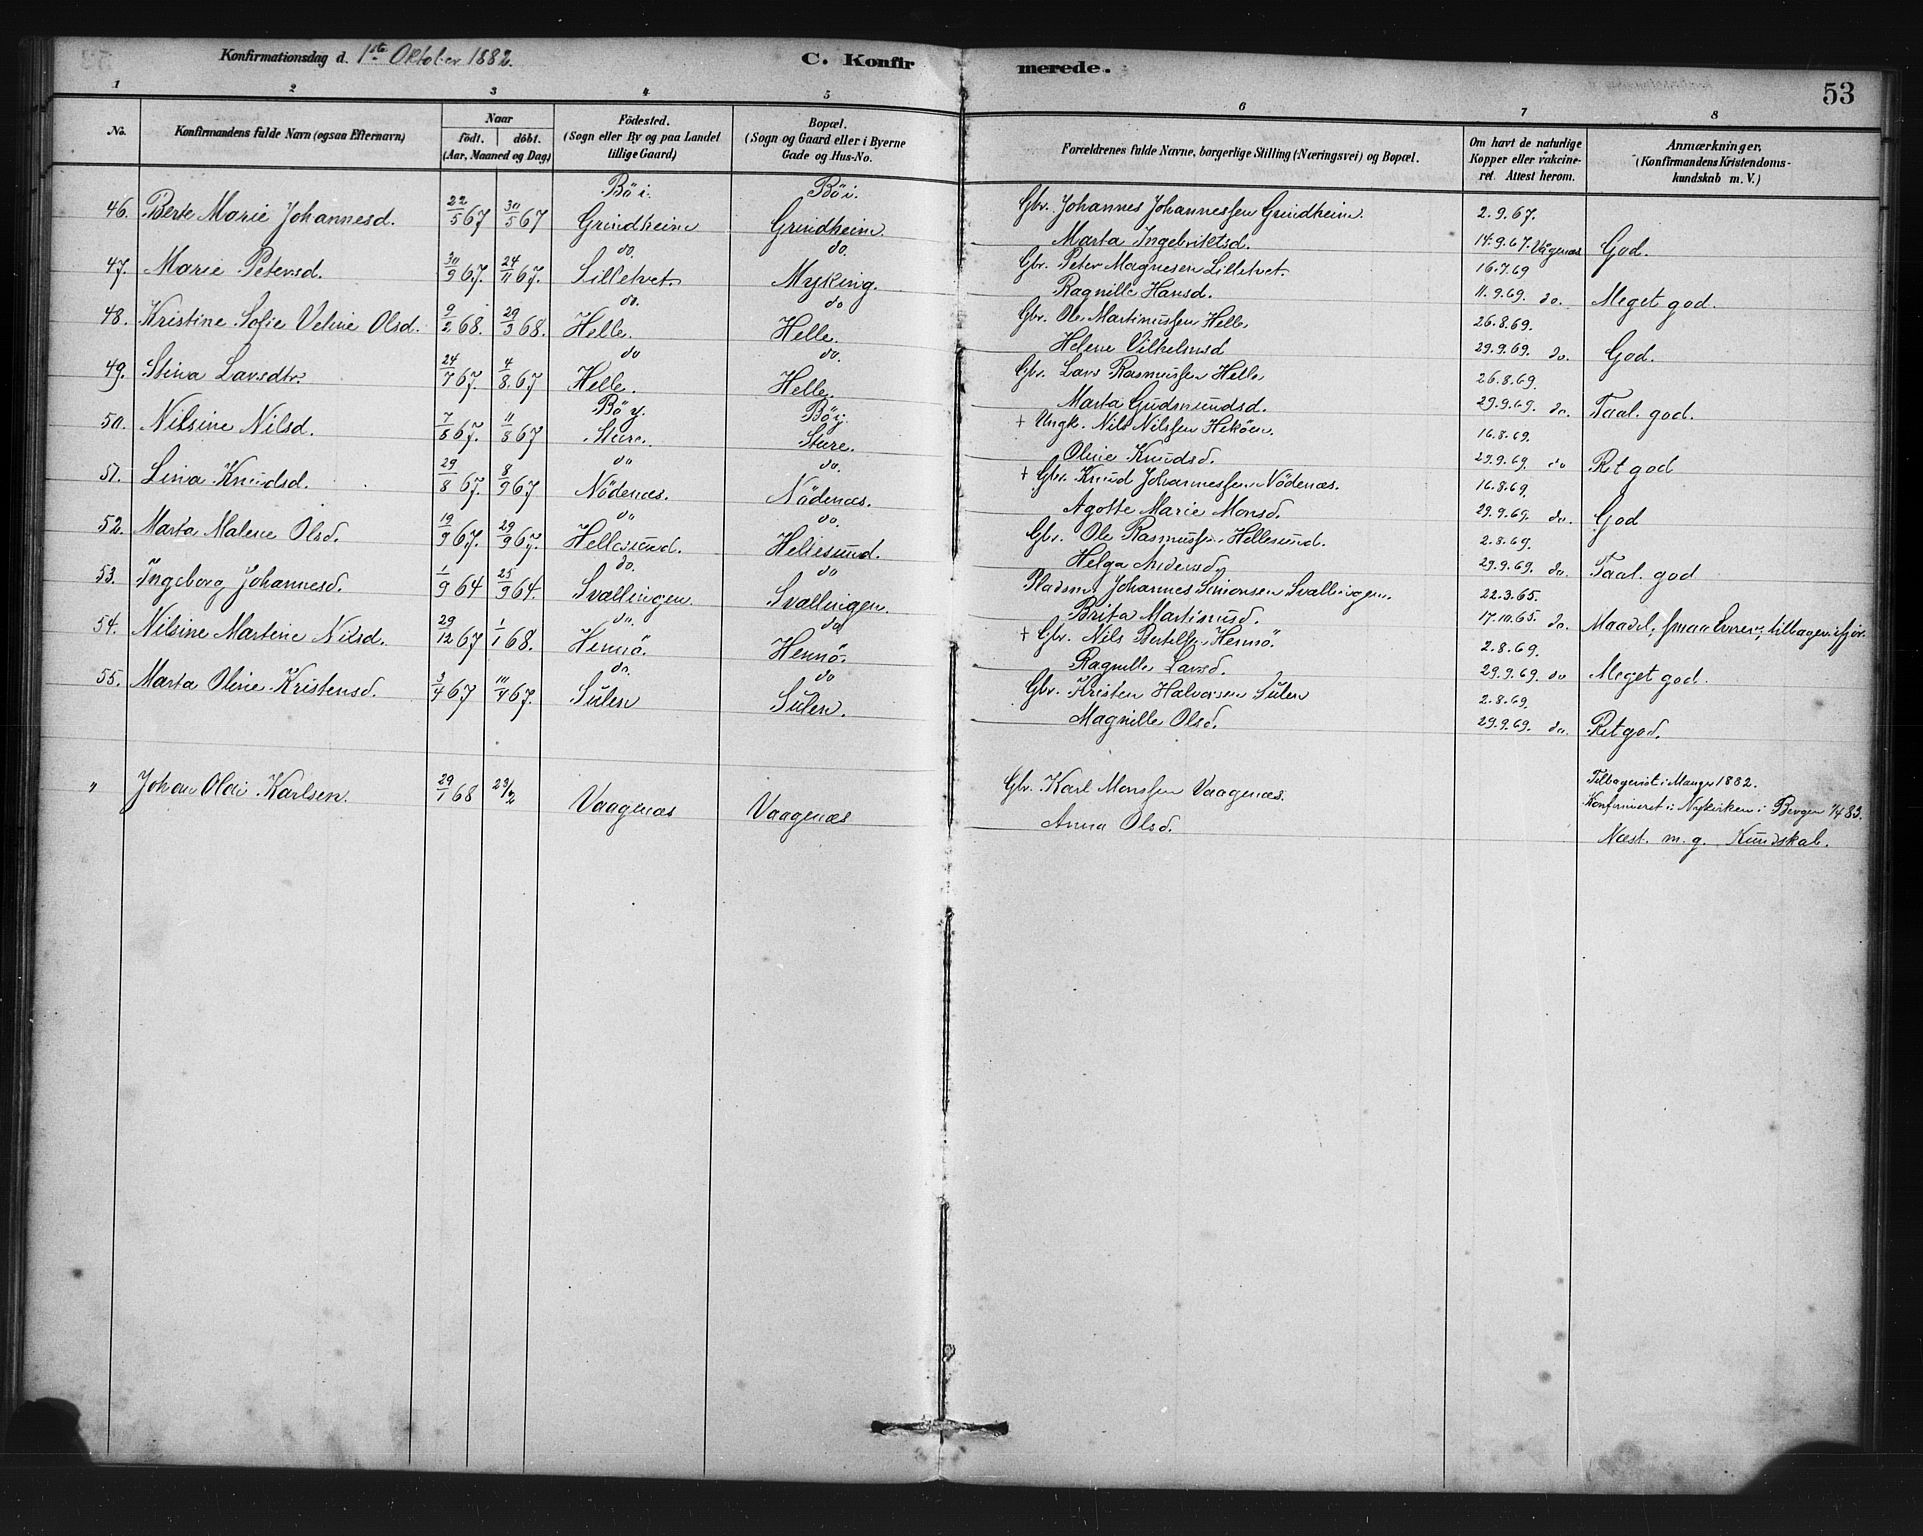 Konfirmationsdag d. 1ste Oktober 1882.
C. Konfir merede.
53
1 2 3 4 5 6 7 8
No. Konfirmandens fulde Navn (ogsaa Efternavn) Naar födt. döbt. (Aar, Maaned og Dag) Födested. (Sogn eller By og paa Landet tillige Gaard) Bopæl. (Sogn og Gaard eller i Byerne Gade og Hus-No. Forældrenes fulde Navne, borgerlige Stilling (Næringsvei) og Bopæl. Om havt de naturlige Kopper eller vakcineret. Attest herom. Anmærkninger. (Konfirmandens Kristendomskundskab m. V.)
46. Berte Marie Johannesd. 22/5 67 30/5 67 Bö i. Grindheim Bö i. Grindheim Gbr. Johannes Johannessen Grindheim. 2.9.67.
Marta Ingebriktsd. 14.9.67. Vågenæs God.
47. Marie Petersd. 30/9 67. 24/11 67. do. Lilletvet. do. Myking. Gbr. Peter Magnesen Lilletvet. 16.7.69
Ragnille Hansd. 11.9.69. do. Meget god.
48. Kristine Sofie Veline Olsd. 9/2 68. 29/3 68. do. Helle. do Helle. Gbr. Ole Martinussen Helle 26.8.69.
Helene Vilhelmsd 29.9.69. do. God.
49. Stina Larsdtr. 24/7 67. 4/8 67 do Helle. do. Helle. Gbr. Lars Rasmussen Helle 26.8.69.
Marta Gudmundsd. 29.9.69. do. Taal. god.
50. Nilsine Nilsd. 7/8 67. 11/8 67 Bö y. Sture. Bö y. Sture. + Ungk. Nils Nilssen Heköen. 16.8.69.
Oline Knudsd. 29.9.69. do Ret god
51. Lina Knudsd. 29/8 67. 8/9 67 do Nödenæs. do. Nödenæs. + Gbr. Knud Johannessen Nödenæs. 16.8.69.
Agotte Marie Monsd. 29.9.69. do. God
52. Marta Malene Olsd. 19/9 67. 29/9 67. do Hellesund. do. Hellesund. Gbr. Ole Rasmussen Hellesund. 2.8.69.
Helga Andersd. 29.9.69. do. Taal. god
53. Ingeborg Johannesd. 1/9 64 25/9 64. do. Svallingen. do Svallingen. Pladsm. Johannes Simonsen Svallingen. 22.3.65.
Brita Martinusd. 17.10.65. do. Maadel, smaa Evner, tilbagev. ifjor.
54. Nilsine Martine Nilsd. 29/12 67 1/1 68. do. Hennö. do Hennö. + Gbr. Nils Bertelsen Hennö. 2.8.69.
Ragnille Larsd. 29.9.69. do Meget god.
55. Marta Oline Kristensd. 3/4 67 11/4 67. do. Sulen do Sulen. Gbr. Kristen Halvorsen Sulen 2.8.69.
Magnille Olsd. 29.9.69. do. Ret god.
" Johan Olai Karlsen. 29/1 68 23/2 Vaagenæs Vaagenæs Gbr. Karl Monssen Vaagenæs. Tilbagevist i Manger 1882.
Anna Olsd. Konfirmeret i Nykirken i Bergen 1/4 83.
Næst. m. g. Kundskab.